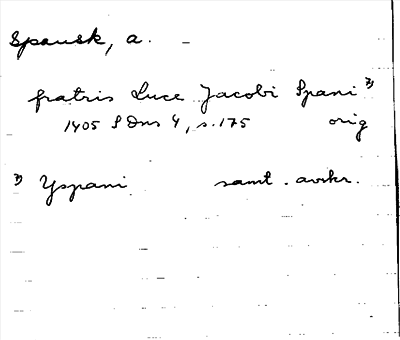 Spansk, a. –
fratris Luce Jacobi Spani ⁊)
1405 SDns 4, s. 175 orig
⁊) Yspani samt. avskr.